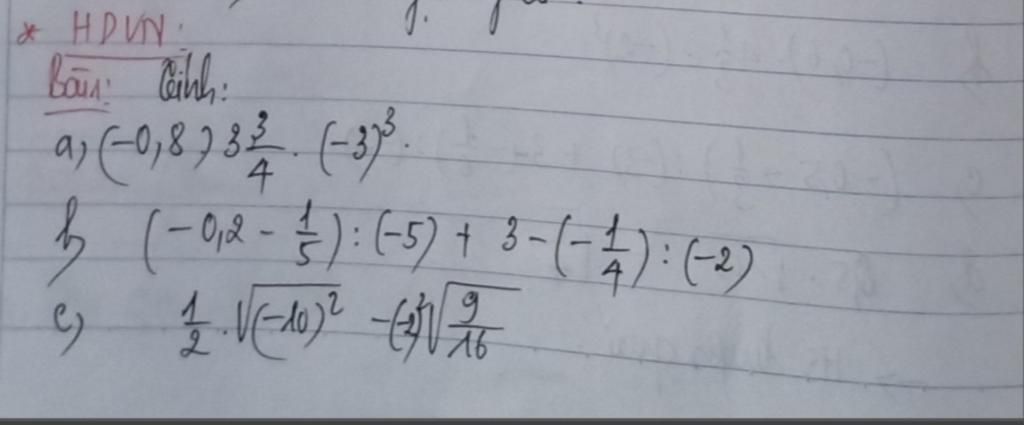 * HDVN:
Bài 1: Tính:
a, (-0,8) 3 3/4 . (-3)³.
b, (-0,2 - 1/5) : (-5) + 3 - (-1/4) : (-2)
c, 1/2 . √(-10)² - (-2)² √9/16